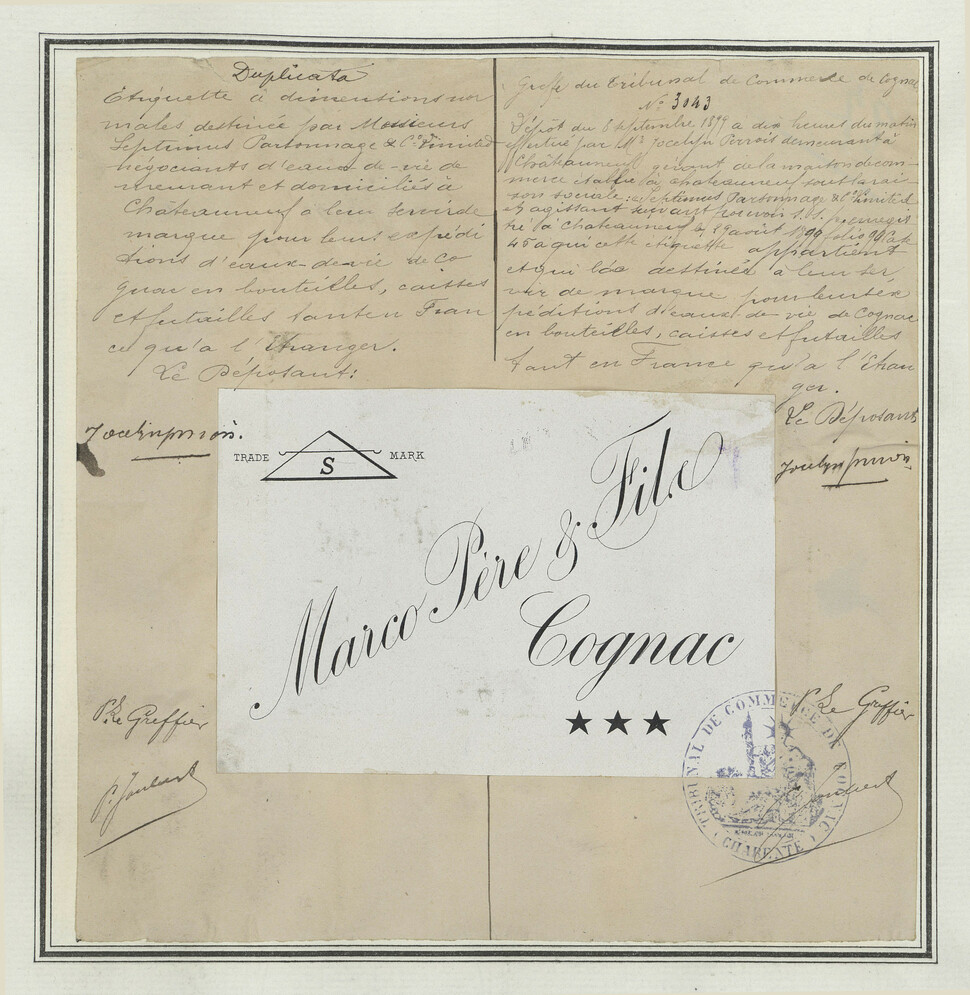 Duplicata
Etiquette à dimensions nor
males destinée par Messieurs
Septimus Parsonnage & Cie Limited
négociants d'eaux-de-vie de
meurant et domiciliés à
Châteauneuf a leur servir de
marque pour leurs expédi
tions d'eaux-de-vie de Co
gnac en bouteilles, caisses
et futailles tant en Fran
ce qu'a l'étranger.
Le Déposant:
Greffe du Tribunal de Commerce de Cognac
No 3043
Dépôt du 8 septembre 1899 a dix heures du matin
effectué par Mr Jocelyn Perrois demeurant à
Châteauneuf, gérant de la maison de com-
merce établie à Châteauneuf sous la rai-
son sociale: Septimus Parsonnage & Cie Limited
et agissant suivant pouvoir s.s.p. enregis
tré à Châteauneuf le 29 août 1899 folio Case
46 a qui cette étiquette appartient
et qui l'a destinée à leur ser
vir de marque pour leurs ex
péditions d'eaux-de-vie de Cognac
en bouteilles, caisses et futailles
tant en France qu'a l'étran
ger.
Le Déposant
TRADE S MARK
Marco Père & Fils
Cognac
★★★
P. Le Greffier
P. Le Greffier
TRIBUNAL DE COMMERCE DE COGNAC
CHARENTE